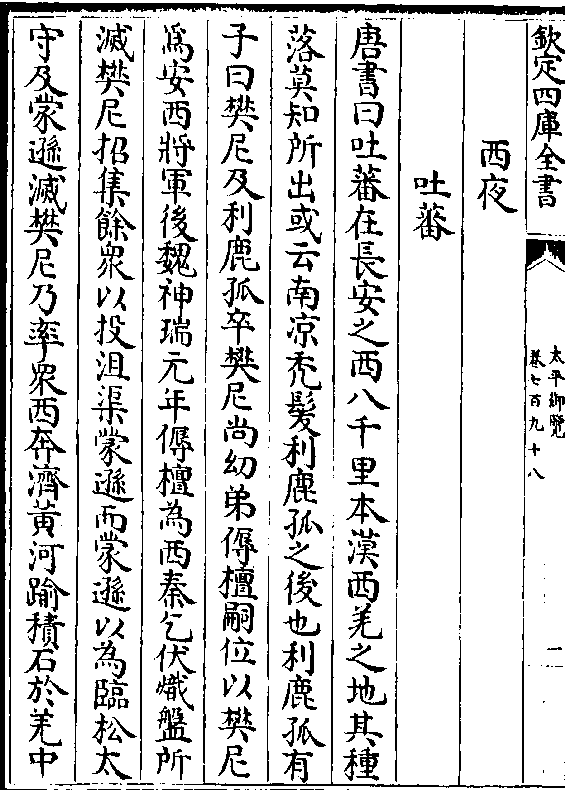 欽定四庫全書
太平御覽
卷七百九十八
一
西夜
吐蕃
唐書曰吐蕃在長安之西八千里本漢西羌之地其種
落莫知所出或云南凉禿髮利鹿孤之後也利鹿孤有
子曰樊尼及利鹿孤卒樊尼尚幼弟傉檀嗣位以樊尼
為安西將軍後魏神瑞元年傉檀為西秦乞伏熾盤所
滅樊尼招集餘衆以投沮渠蒙遜而蒙遜以為臨松太
守及蒙遜滅樊尼乃率衆西奔濟黃河踰積石於羌中